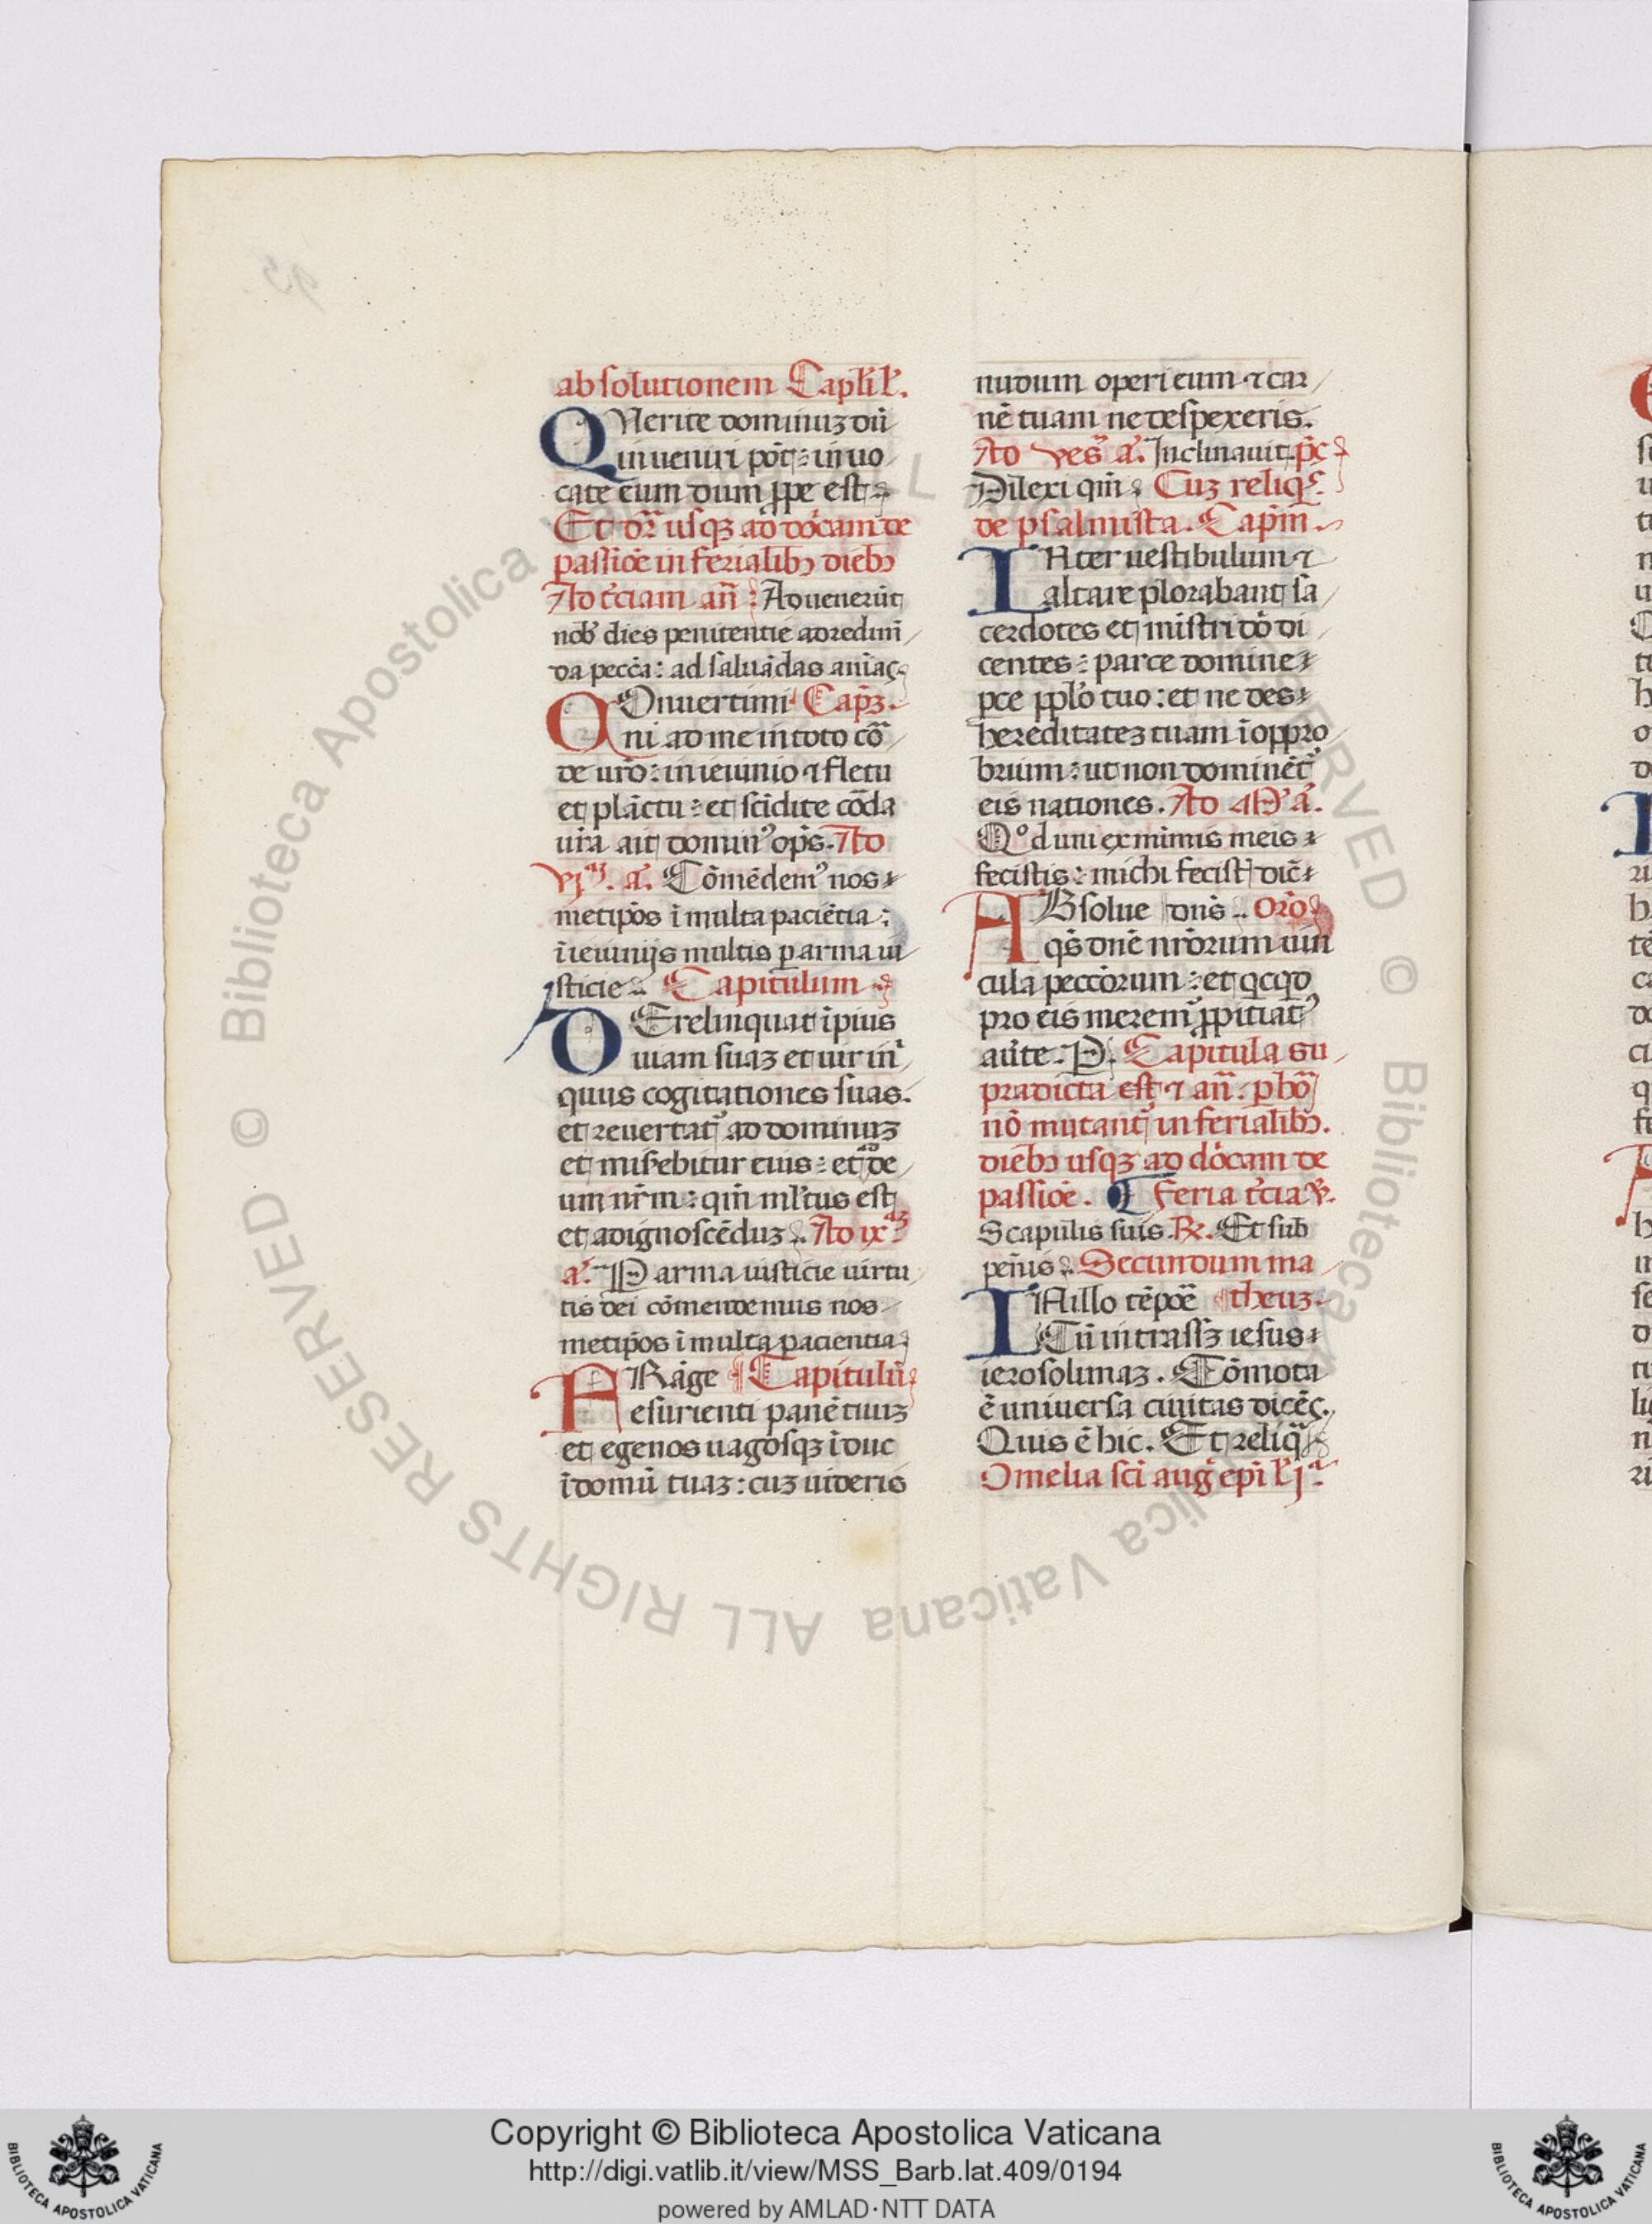 absolutionem Capl'il'.
QUerite dominuz dū
inueniri pōt: inuo
cate eum dum ꝓpe est
Et dr̄ usqꝫ ad dōcam de
passiōe in ferialibꝫ diebꝫ
Ad t̄ciam an̄: Aduenerūt
nob' dies penitentie adredimē
da pecc̄a: ad saluādas aniās
COnuertimi Cap̄z.
ni ad me in toto cō
de ur̄o: in ieiunio ⁊ fletu
et plāctu: et scīdite cōda
ur̄a ait domin' op̄s. Ad
vjᵃᵐ. a'. Cōmēdem' nos
metip̄os ī multa paciētia:
ī ieiunijs multis ꝑ arma iu
sticie. Capitulum
DErelinquat īpius
uiam suaz et uir in'
quus cogitationes suas.
et reuertat' ad dominuz
et mis'ebitur eius: et ad de
um nr̄m: qm̄ ml'tus est
et adignoscēduz. Ad ixᵃᵐ
a'. P arma iusticie uirtu
tis dei cōmendemus nos
metip̄os ī multa pacientia
FRāge Capitulū
esurienti panē tuuz
et egenos uagosqꝫ īduc
ī domū tuaz: cuz uideris
nudum operi eum ⁊ car
nē tuam ne despexeris.
Ad ves' a'. Inclinauit. p̄s
Dilexi qm̄. Cuz reliq̄s
de psalmista. Cap̄m.
INter uestibulum ⁊
altare plorabant sa
cerdotes et mīstri dō di
centes: parce domine
pce pp̄lo tuo: et ne des
hereditatez tuam ī oppro
brium: ut non dominēt'
eis nationes. Ad M' a'.
Qᵒd uni ex minimis meis
fecistis: michi fecist' dic̄
ABsolue dn̄s. Orō
qs̄ dn̄e nr̄orum uin
cula peccōrum: et qcqd
pro eis merem' ꝓpitiat'
aūte. P. Capitula su
pradicta est ⁊ an̄: ꝑ hō
nō mutant' in ferialibꝫ.
diebꝫ usqꝫ ad dōcam de
passiōe. Feria t̄cia. v.
Scapulis suis. R. Et sub
pēnis. Secundum ma
IN illo tēpoē theuz.
Cū intrassꝫ iesus
ierosolimaz. Cōmota
ē uniuersa ciuitas dicēs.
Quis ē hic. Et reliq̄
Omelia sc̄i aug' epī l'j.ᵃ
Copyright © Biblioteca Apostolica Vaticana
http://digi.vatlib.it/view/MSS_Barb.lat.409/0194
powered by AMLAD·NTT DATA